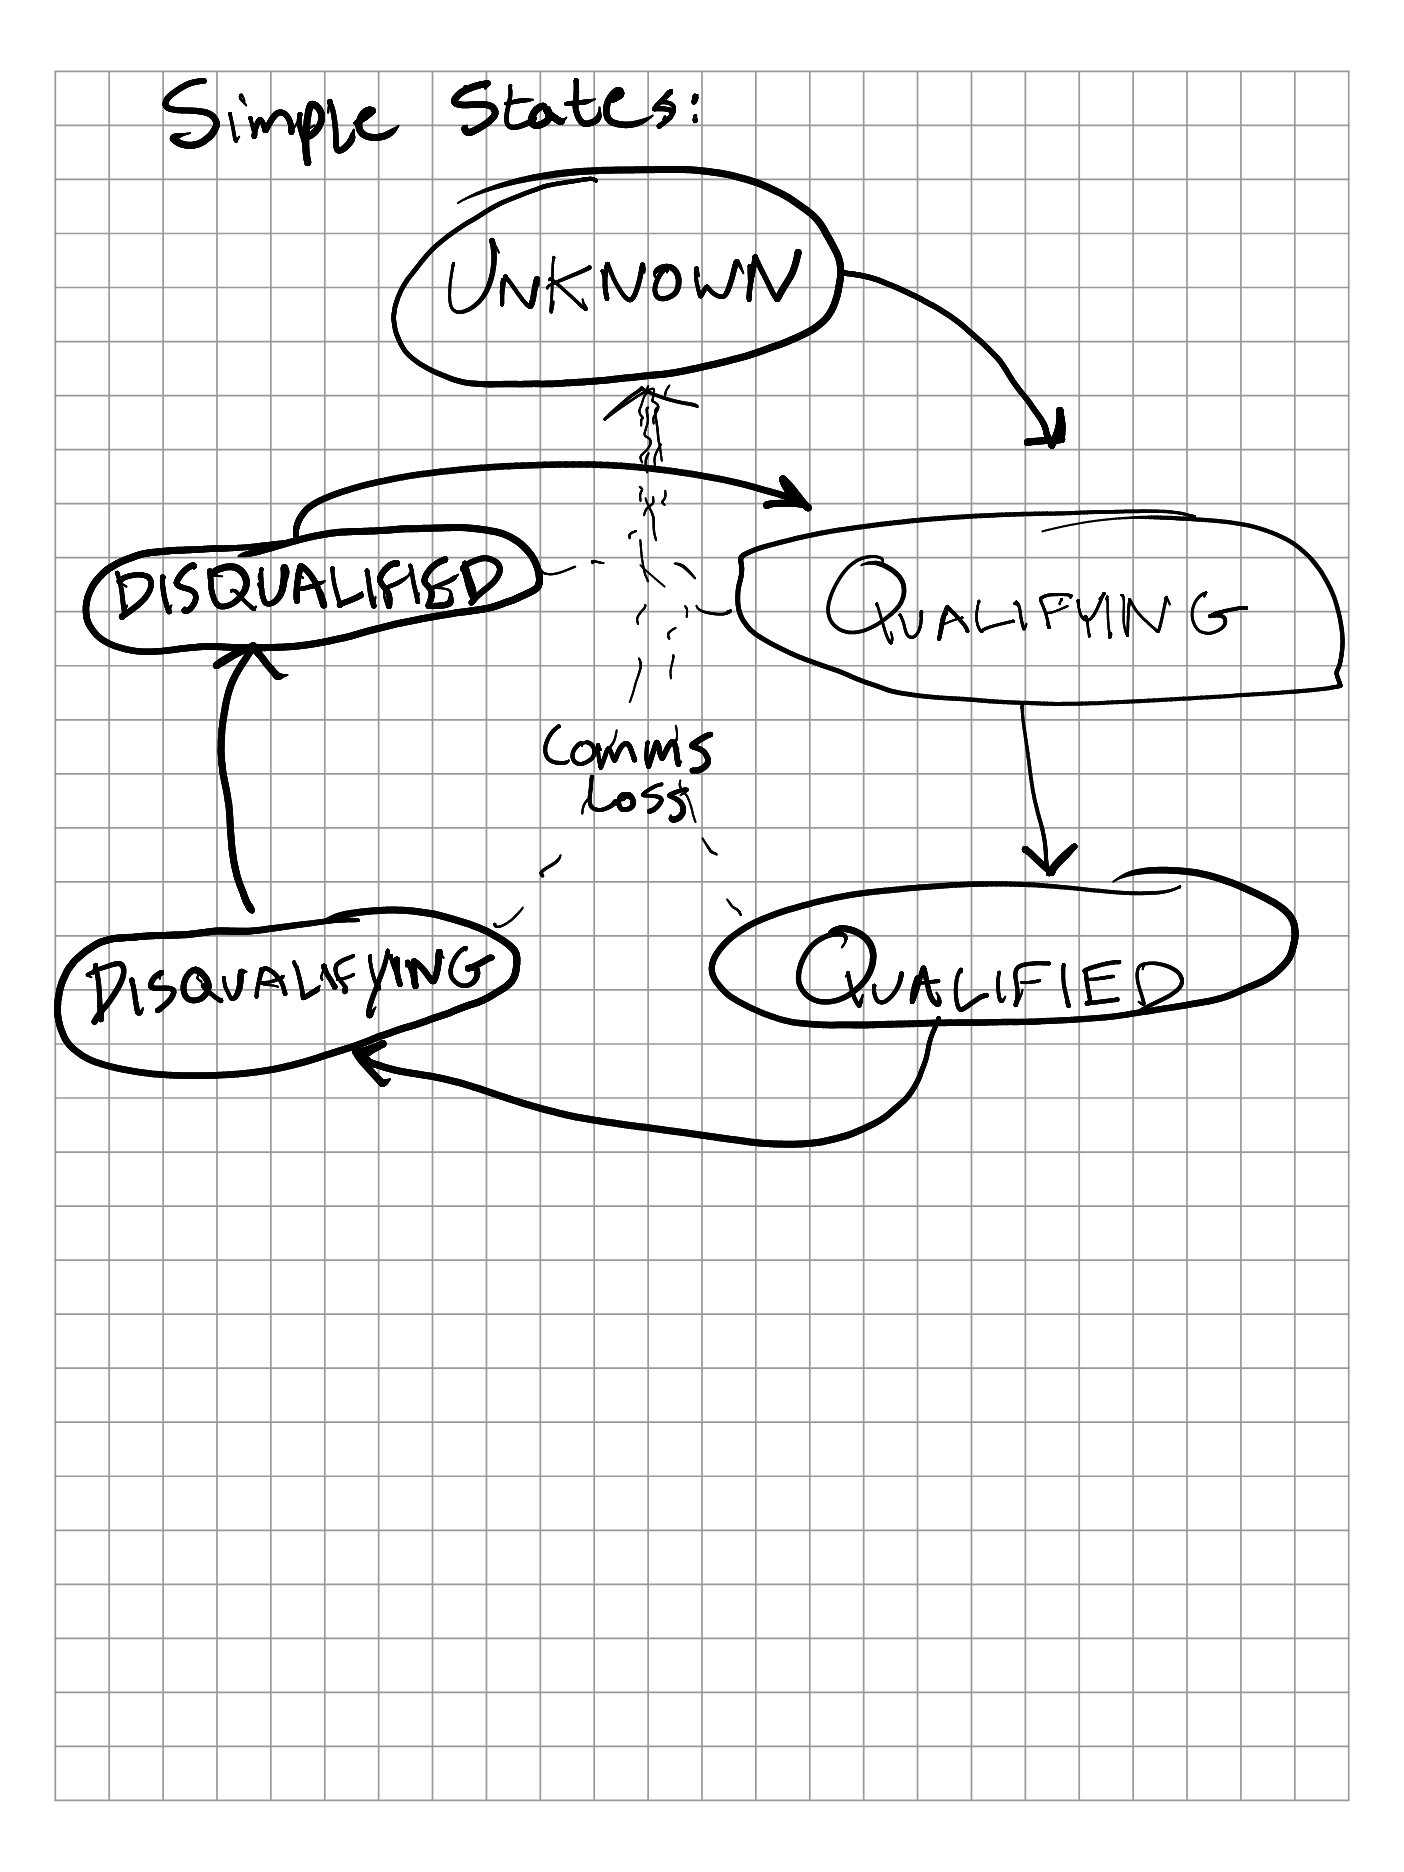 Simple States:
UNKNOWN
DISQUALIFIED
QUALIFYING
Comms
Loss
DISQUALIFYING
QUALIFIED